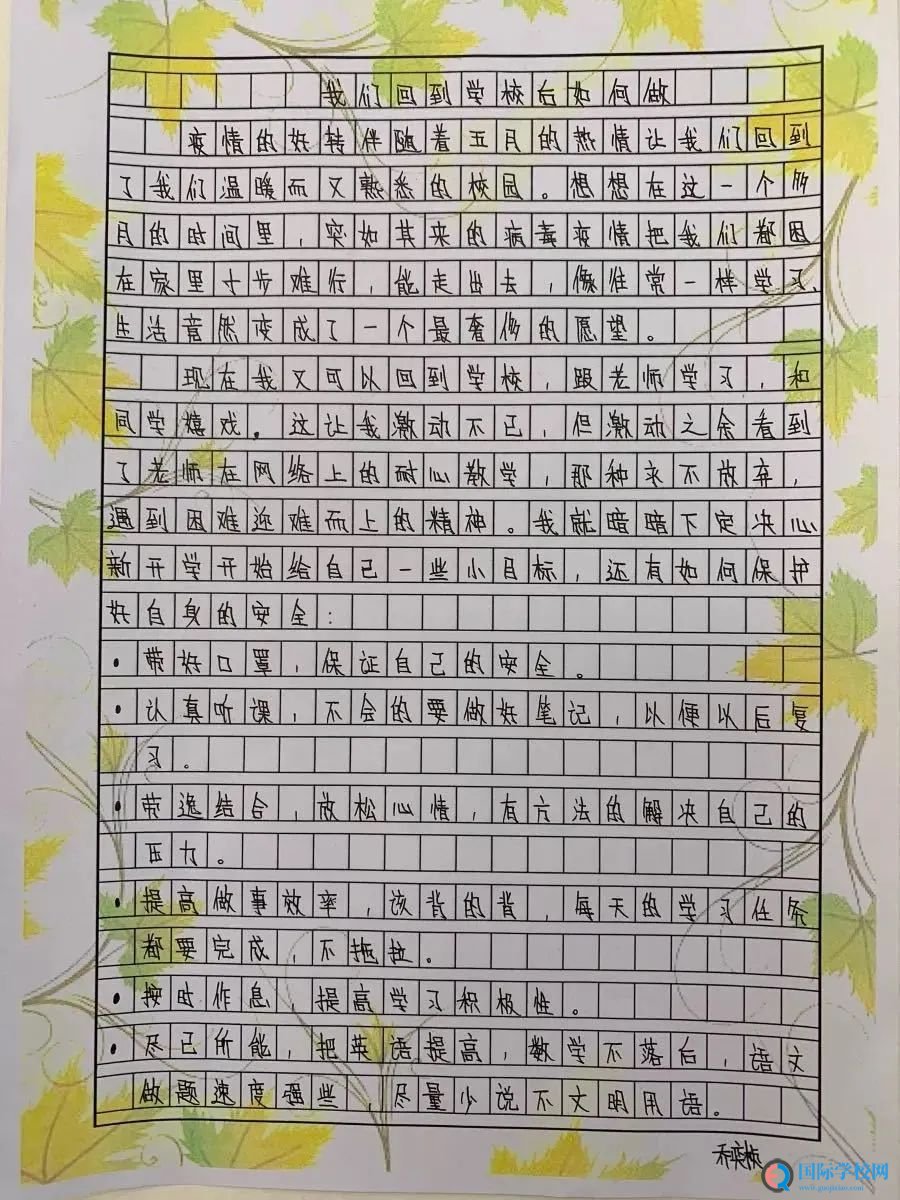 我们回到学校后如何做
疫情的好转伴随着五月的热情让我们回到
了我们温暖而又熟悉的校园。想想在这一个多
月的时间里,突如其来的病毒疫情把我们都困
在家里寸步难行,能走出去,像往常一样学习、
生活竟然变成了一个最奢侈的愿望。
现在我又可以回到学校,跟老师学习,和
同学嬉戏。这让我激动不已,但激动之余看到
了老师在网络上的耐心教学,那种永不放弃,
遇到困难迎难而上的精神。我就暗暗下定决心
新开学开始给自己一些小目标,还有如何保护
好自身的安全:
·带好口罩,保证自己的安全。
·认真听课,不会的要做好笔记,以便以后复
习。
·劳逸结合,放松心情,有方法的解决自己的
压力。
·提高做事效率,该背的背,每天的学习任务
都要完成,不拖拉。
·按时作息,提高学习积极性。
·尽己所能,把英语提高,数学不落后,语文
做题速度强些,尽量少说不文明用语。
国际学校网
www.guojixiao.com